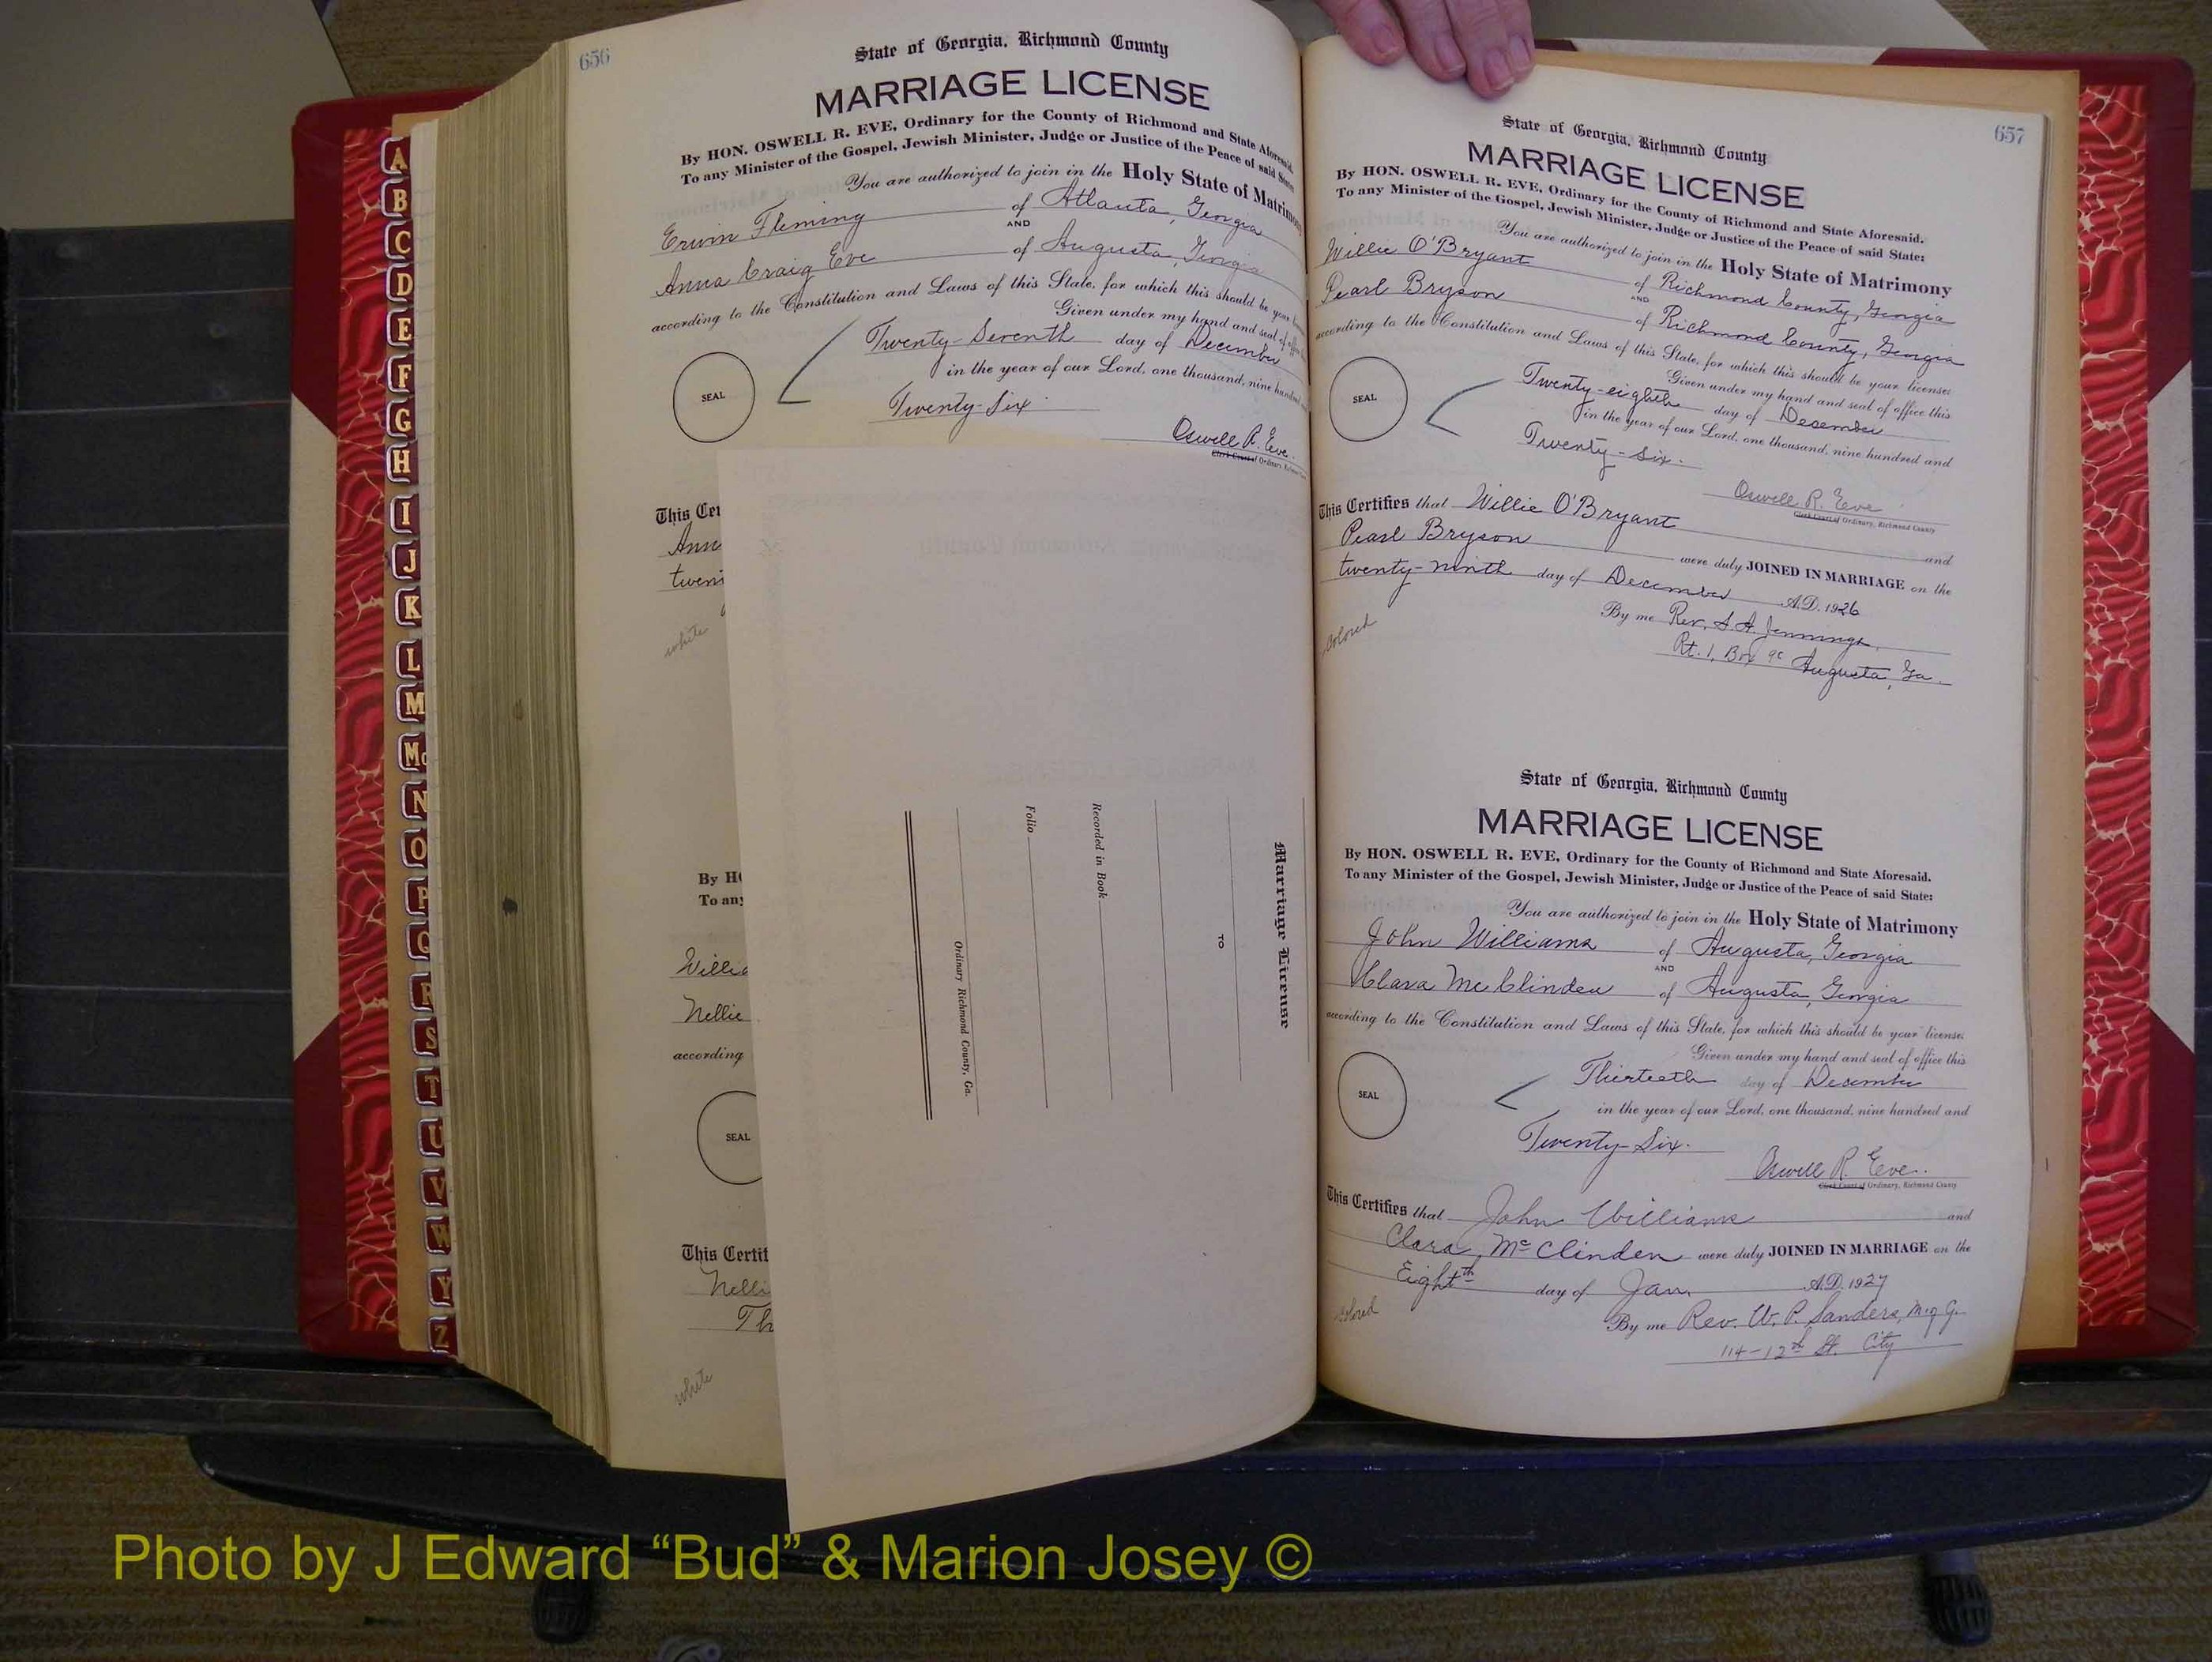 656
State of Georgia, Richmond County
MARRIAGE LICENSE
By HON. OSWELL R. EVE, Ordinary for the County of Richmond and State Aforesaid.
To any Minister of the Gospel, Jewish Minister, Judge or Justice of the Peace of said State
You are authorized to join in the Holy State of Matrimony
Erwin Fleming of Atlanta, Georgia
AND
Anna Craig Eve of Augusta, Georgia
according to the Constitution and Laws of this State, for which this should be your
Given under my hand and seal of office
Twenty-Seventh day of December
in the year of our Lord, one thousand, nine hundred
Twenty-Six
SEAL
Oswell R. Eve.
Clerk Court of Ordinary,
This Cer
Ann
twen
white
By HO
To any
Willia
Nellie
according
SEAL
This Certif
Nelli
Th
white
Marriage License
TO
Recorded in Book
Folio
Ordinary Richmond County, Ga.
657
State of Georgia, Richmond County
MARRIAGE LICENSE
By HON. OSWELL R. EVE, Ordinary for the County of Richmond and State Aforesaid.
To any Minister of the Gospel, Jewish Minister, Judge or Justice of the Peace of said State:
You are authorized to join in the Holy State of Matrimony
Willie O'Bryant of Richmond County, Georgia
AND
Pearl Bryson of Richmond County, Georgia
according to the Constitution and Laws of this State, for which this should be your license
Given under my hand and seal of office this
Twenty-eighth day of December
in the year of our Lord, one thousand, nine hundred and
Twenty-six.
SEAL
Oswell R. Eve
Clerk Court of Ordinary, Richmond County
This Certifies that Willie O'Bryant and
Pearl Bryson were duly JOINED IN MARRIAGE on the
twenty-ninth day of December A.D. 1926
By me Rev. S. A. Jennings,
Rt. 1, Box Augusta, Ga.
Colored
State of Georgia, Richmond County
MARRIAGE LICENSE
By HON. OSWELL R. EVE, Ordinary for the County of Richmond and State Aforesaid.
To any Minister of the Gospel, Jewish Minister, Judge or Justice of the Peace of said State:
You are authorized to join in the Holy State of Matrimony
John Williams of Augusta, Georgia
AND
Clara McClinden of Augusta, Georgia
according to the Constitution and Laws of this State, for which this should be your license
Given under my hand and seal of office this
Thirteeth day of December
in the year of our Lord, one thousand, nine hundred and
Twenty-Six.
SEAL
Oswell R. Eve.
Clerk Court of Ordinary, Richmond County
This Certifies that John Williams and
Clara McClinden were duly JOINED IN MARRIAGE on the
Eighth day of Jan. A.D. 1927
By me Rev. W. P. Sanders, M. g G.
114-12th St. City
Colored
A
B
C
D
E
F
G
H
I
J
K
L
M
Mc
N
O
P
Q
R
S
T
U
V
W
Y
Z
Photo by J Edward “Bud” & Marion Josey ©